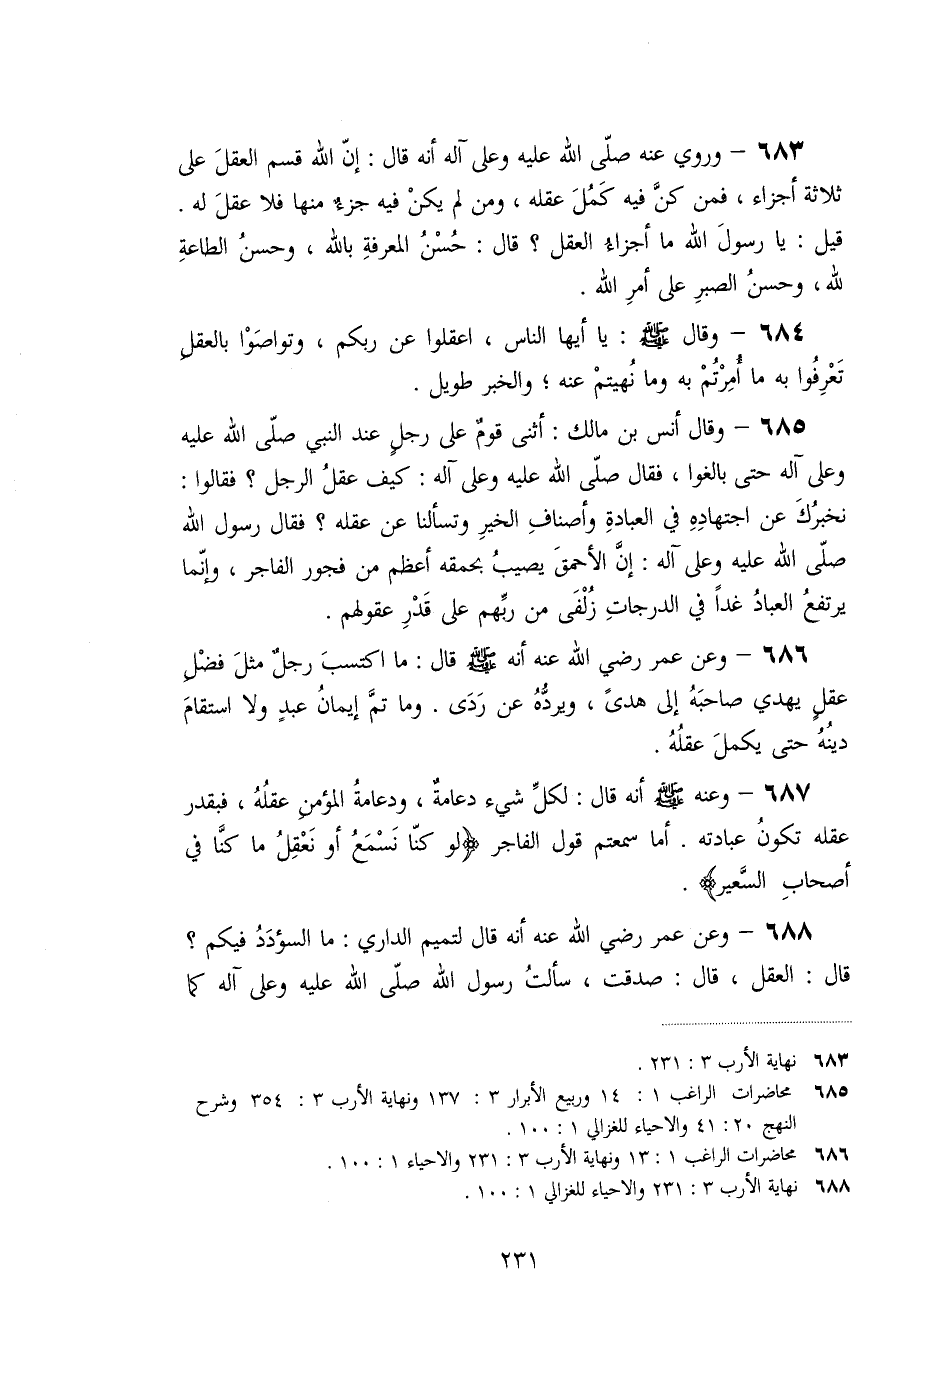 ٦٨٣ – وروي عنه صلّى الله عليه وعلى آله أنه قال : إنّ الله قسم العقلَ على
ثلاثة أجزاء ، فمن كنَّ فيه كَمُلَ عقله ، ومن لم يكنْ فيه جزءٌ منها فلا عقلَ له .
قيل : يا رسولَ الله ما أجزاءُ العقل ؟ قال : حُسْنُ المعرفةِ بالله ، وحسنُ الطاعةِ
لله ، وحسنُ الصبرِ على أمرِ الله .
٦٨٤ – وقال ﷺ : يا أيها الناس ، اعقلوا عن ربكم ، وتواصَوْا بالعقلِ
تَعْرِفُوا به ما أُمِرْتُمْ به وما نُهيتمْ عنه ؛ والخبر طويل .
٦٨٥ – وقال أنس بن مالك : أثنى قومٌ على رجلٍ عند النبي صلّى الله عليه
وعلى آله حتى بالغوا ، فقال صلّى الله عليه وعلى آله : كيف عقلُ الرجل ؟ فقالوا :
نخبرُكَ عن اجتهادِهِ في العبادةِ وأصنافِ الخيرِ وتسألنا عن عقله ؟ فقال رسول الله
صلّى الله عليه وعلى آله : إنَّ الأحمقَ يصيبُ بحمقه أعظم من فجور الفاجر ، وإنّما
يرتفعُ العبادُ غداً في الدرجاتِ زُلْفَى من ربِّهم على قَدْرِ عقولهم .
٦٨٦ – وعن عمر رضي الله عنه أنه ﷺ قال : ما اكتسبَ رجلٌ مثلَ فضْلِ
عقلٍ يهدي صاحبَهُ إلى هدىً ، ويردُّهُ عن رَدَى . وما تمَّ إيمانُ عبدٍ ولا استقامَ
دينُهُ حتى يكملَ عقلُهُ .
٦٨٧ – وعنه ﷺ أنه قال : لكلِّ شيء دعامةٌ ، ودعامةُ المؤمنِ عقلُهُ ، فبقدر
عقله تكونُ عبادته . أما سمعتم قول الفاجر ﴿لو كنّا نَسْمَعُ أو نَعْقِلُ ما كنَّا في
أصحابِ السَّعير﴾ .
٦٨٨ – وعن عمر رضي الله عنه أنه قال لتميم الداري : ما السؤدَدُ فيكم ؟
قال : العقل ، قال : صدقت ، سألتُ رسول الله صلّى الله عليه وعلى آله كما
٦٨٣ نهاية الأرب ٣ : ٢٣١ .
٦٨٥ محاضرات الراغب ١ : ١٤ وربيع الأبرار ٣ : ١٣٧ ونهاية الأرب ٣ : ٣٥٤ وشرح
النهج ٢٠ : ٤١ والاحياء للغزالي ١ : ١٠٠ .
٦٨٦ محاضرات الراغب ١ : ١٣ ونهاية الأرب ٣ : ٢٣١ والاحياء ١ : ١٠٠ .
٦٨٨ نهاية الأرب ٣ : ٢٣١ والاحياء للغزالي ١ : ١٠٠ .
٢٣١